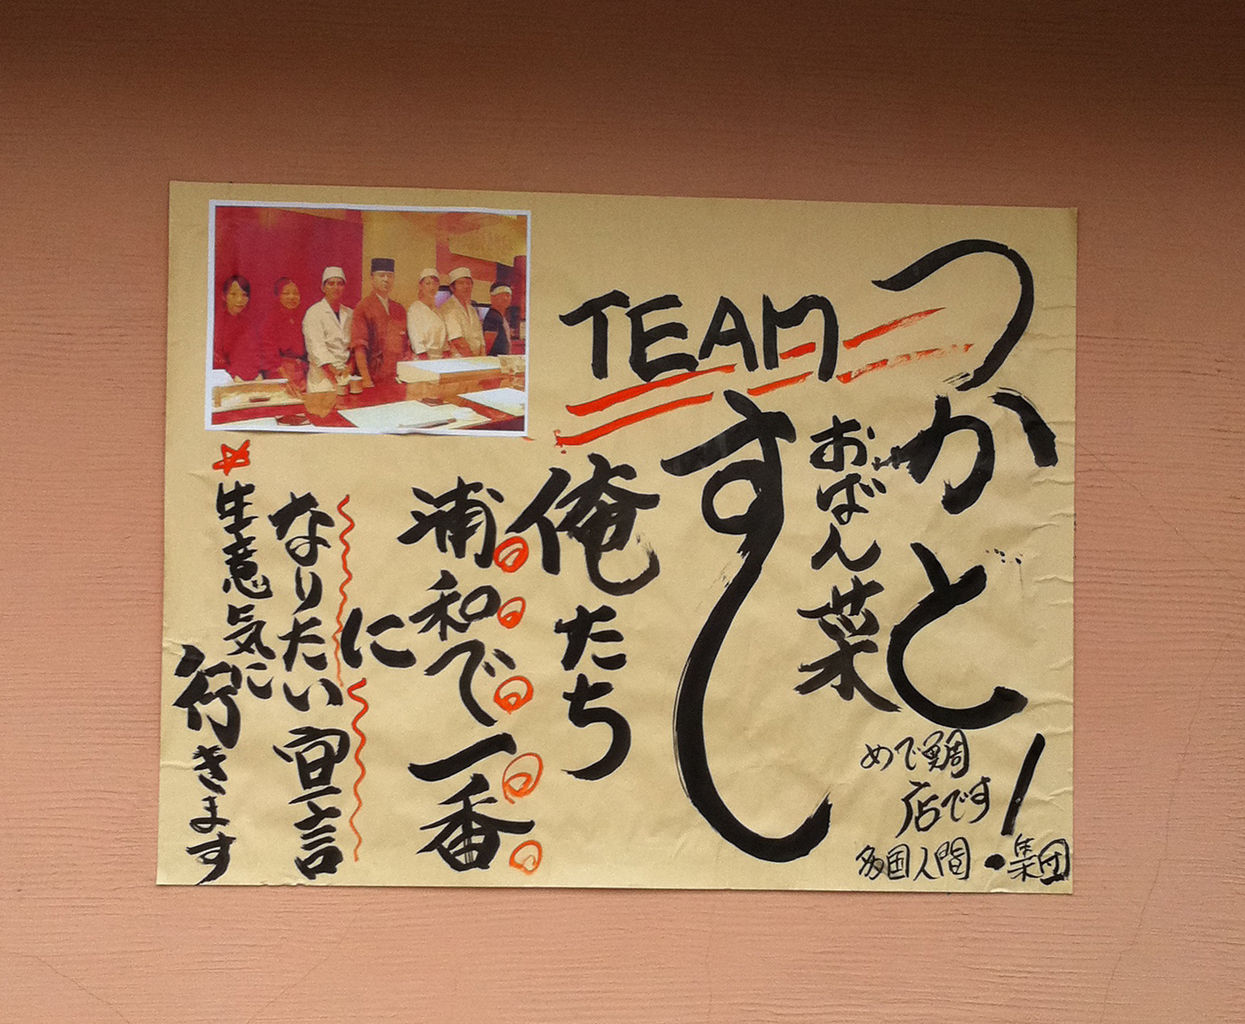 つかと!
おばん菜
すし
TEAM
めで鯛
店です
多国人間・集団
俺たち
浦和で一番
に
なりたい宣言
生意気に
行きます